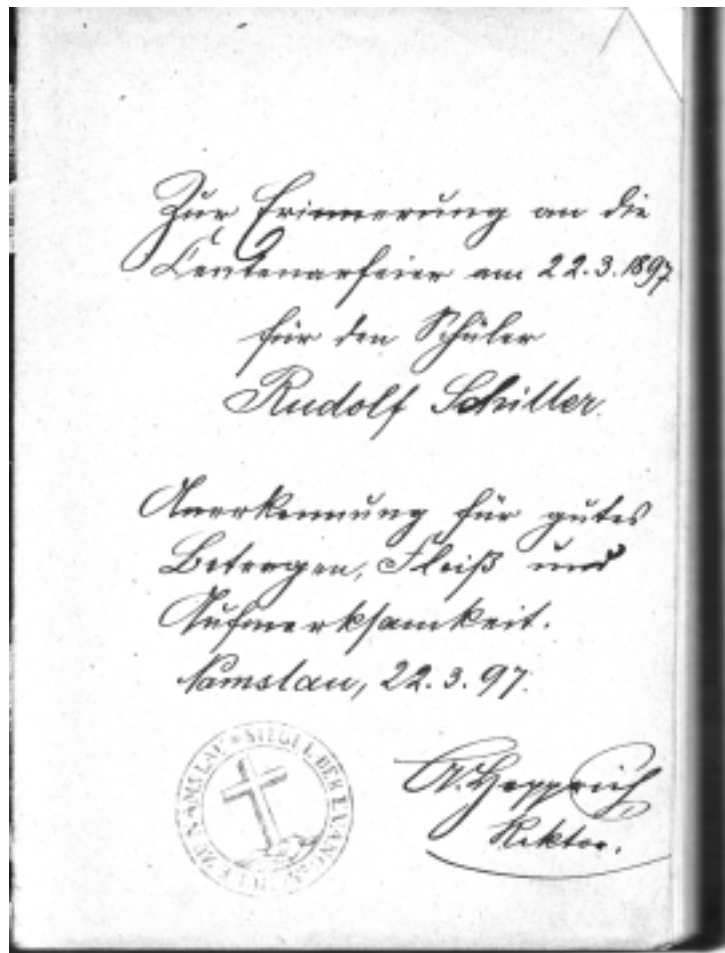 Zur Erinnerung an die
Centenarfeier am 22.3.1897
für den Schüler
Rudolf Schiller.
Anerkennung für gutes
Betragen, Fleiß und
Aufmerksamkeit.
Namslau, 22.3.97.
SIEGEL DER EVANG. ZU NAMSLAU
Rektor.